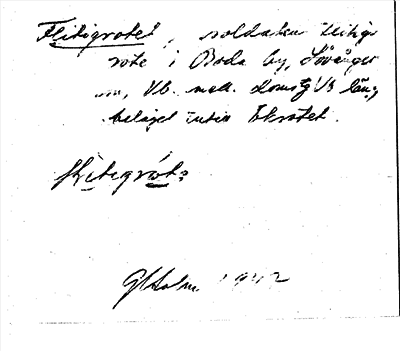 Flitigrotet, soldaten Flitigs
rote i Boda by, Lövånger
sn, Vb. mell. domstg 1/3 läng,
beläget intill Ekrotet.
Flitigrót:
GHolm 1942